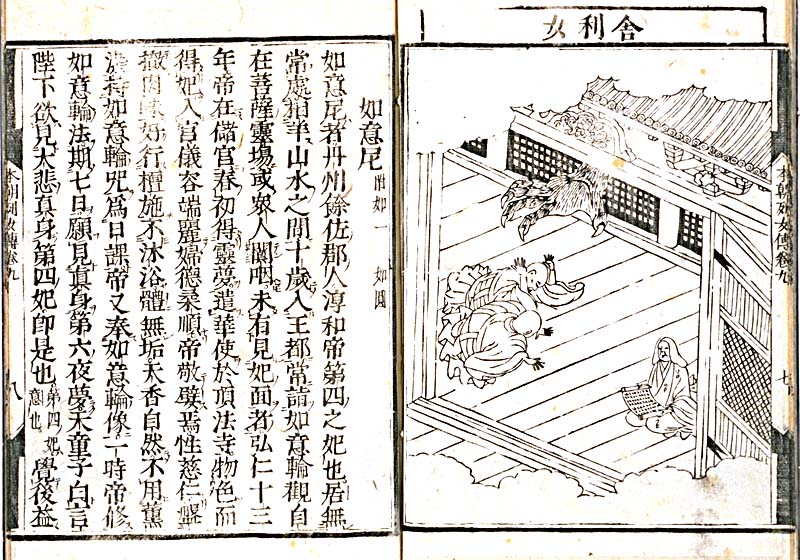 舎利女
本朝列女傳卷九
七
如意尼 附如一 如圓
如意尼者丹州餘佐郡人淳和帝第四之妃也居無
常處相羊山水之間十歲入王都常詣如意輪觀自
在菩薩靈場或衆人闐咽未有見妃面者弘仁十三
年帝在儲宮春初得靈夢遣華使於頂法寺物色而
得妃入宮儀容端麗婦德柔順帝敬嬖焉性慈仁
肉味好行檀施不沐浴體無垢天香自然不用薫
持如意輪咒爲日課帝又奉如意輪像一時帝修
如意輪法期七日願見眞身第六夜夢天童子白言
陛下欲見大悲眞身第四妃即是也 第四妃 意也 覺後益
本朝列女傳卷九
八